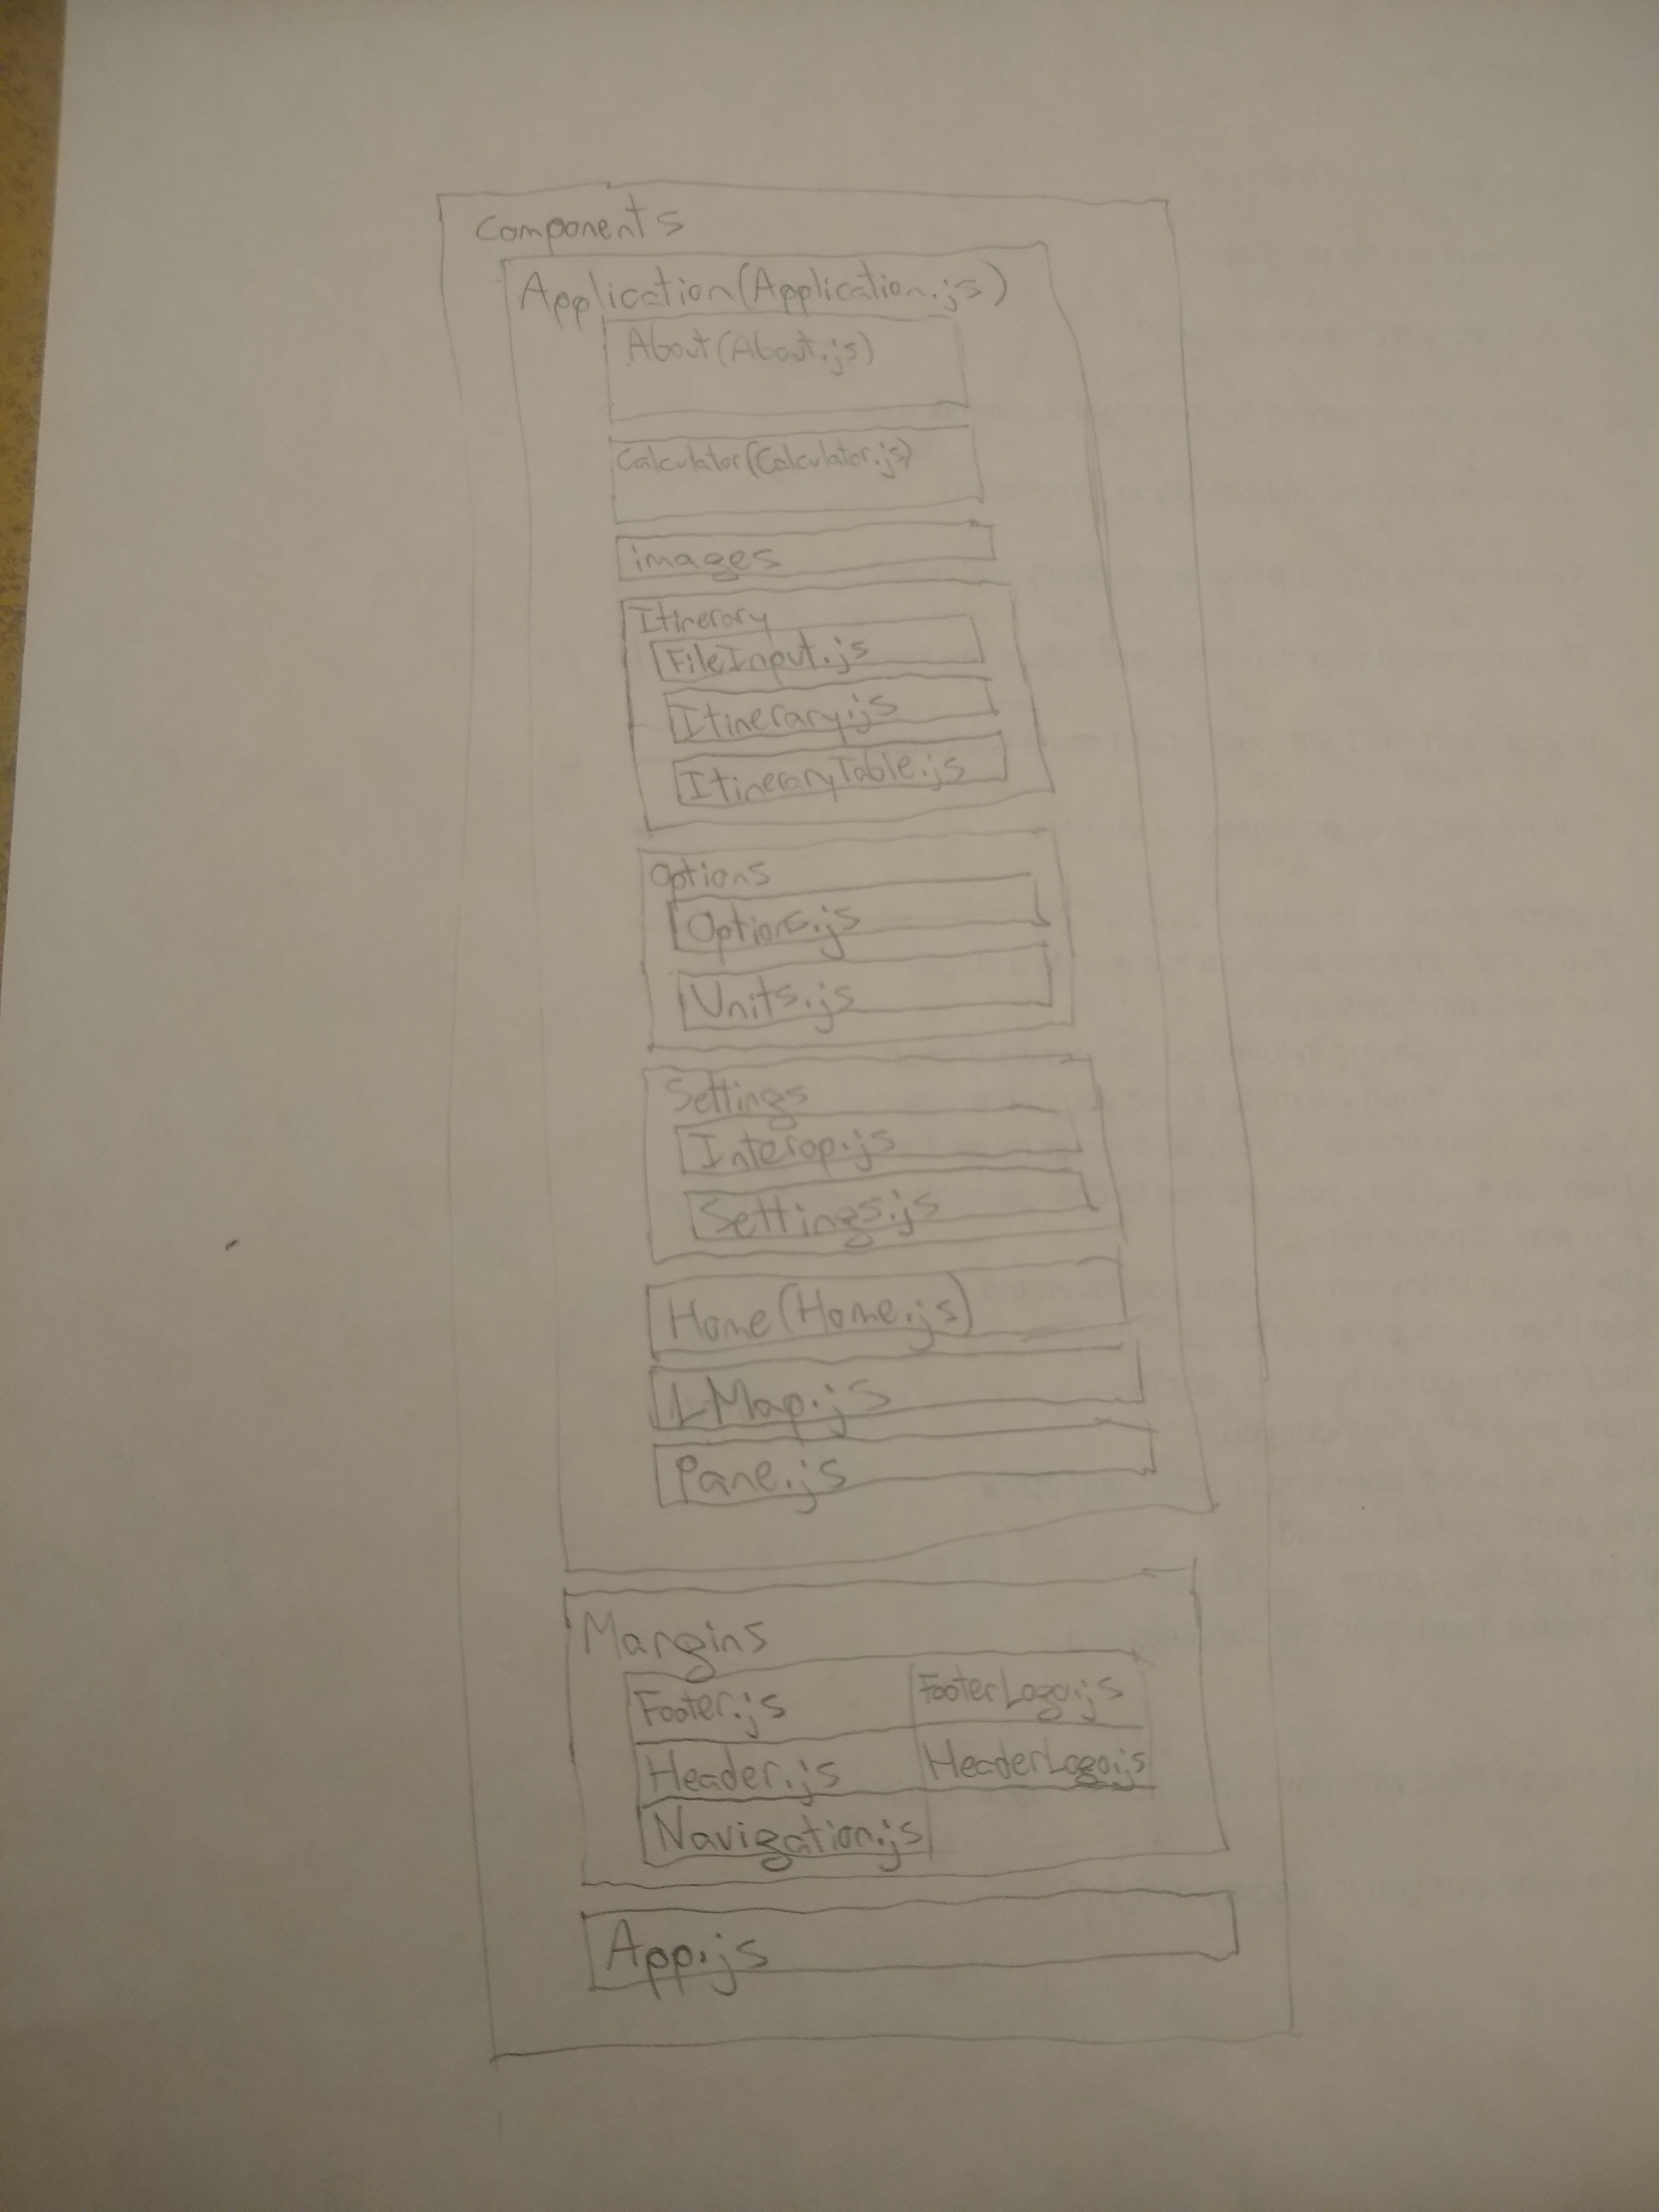 Components
Application(Application.js)
About(About.js)
Calculator(Calculator.js)
images
Itinerary
FileInput.js
Itinerary.js
ItineraryTable.js
Options
Options.js
Units.js
Settings
Interop.js
Settings.js
Home(Home.js)
LMap.js
Pane.js
Margins
Footer.js FooterLogo.js
Header.js HeaderLogo.js
Navigation.js
App.js